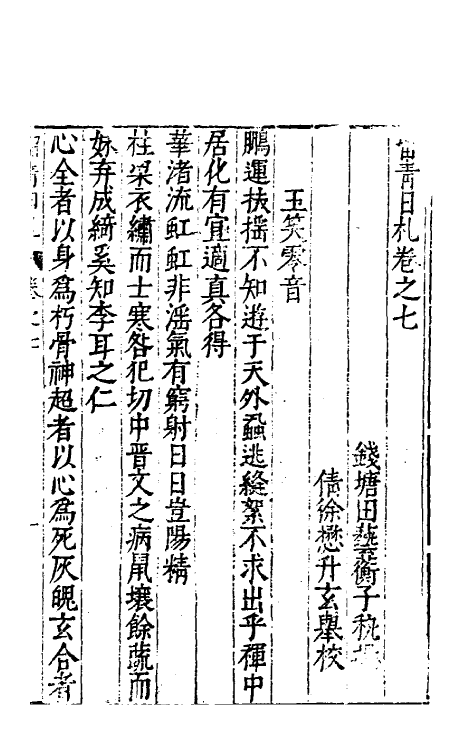 留青日札卷之七
錢塘田藝蘅子秇撰
倩徐懋升玄舉校
玉笑零音
鵬運扶搖不知遊于天外蝨逃縫絮不求出乎褌中
居化有宜適真各得
華渚流虹虹非滛氣有窮射日日豈陽精
柱梁衣繡而士寒咎犯切中晋文之病鼠壤餘蔬而
妺弃成綺奚知李耳之仁
心全者以身為朽骨神超者以心為死灰䰟玄合者
留青日札 卷之七 一